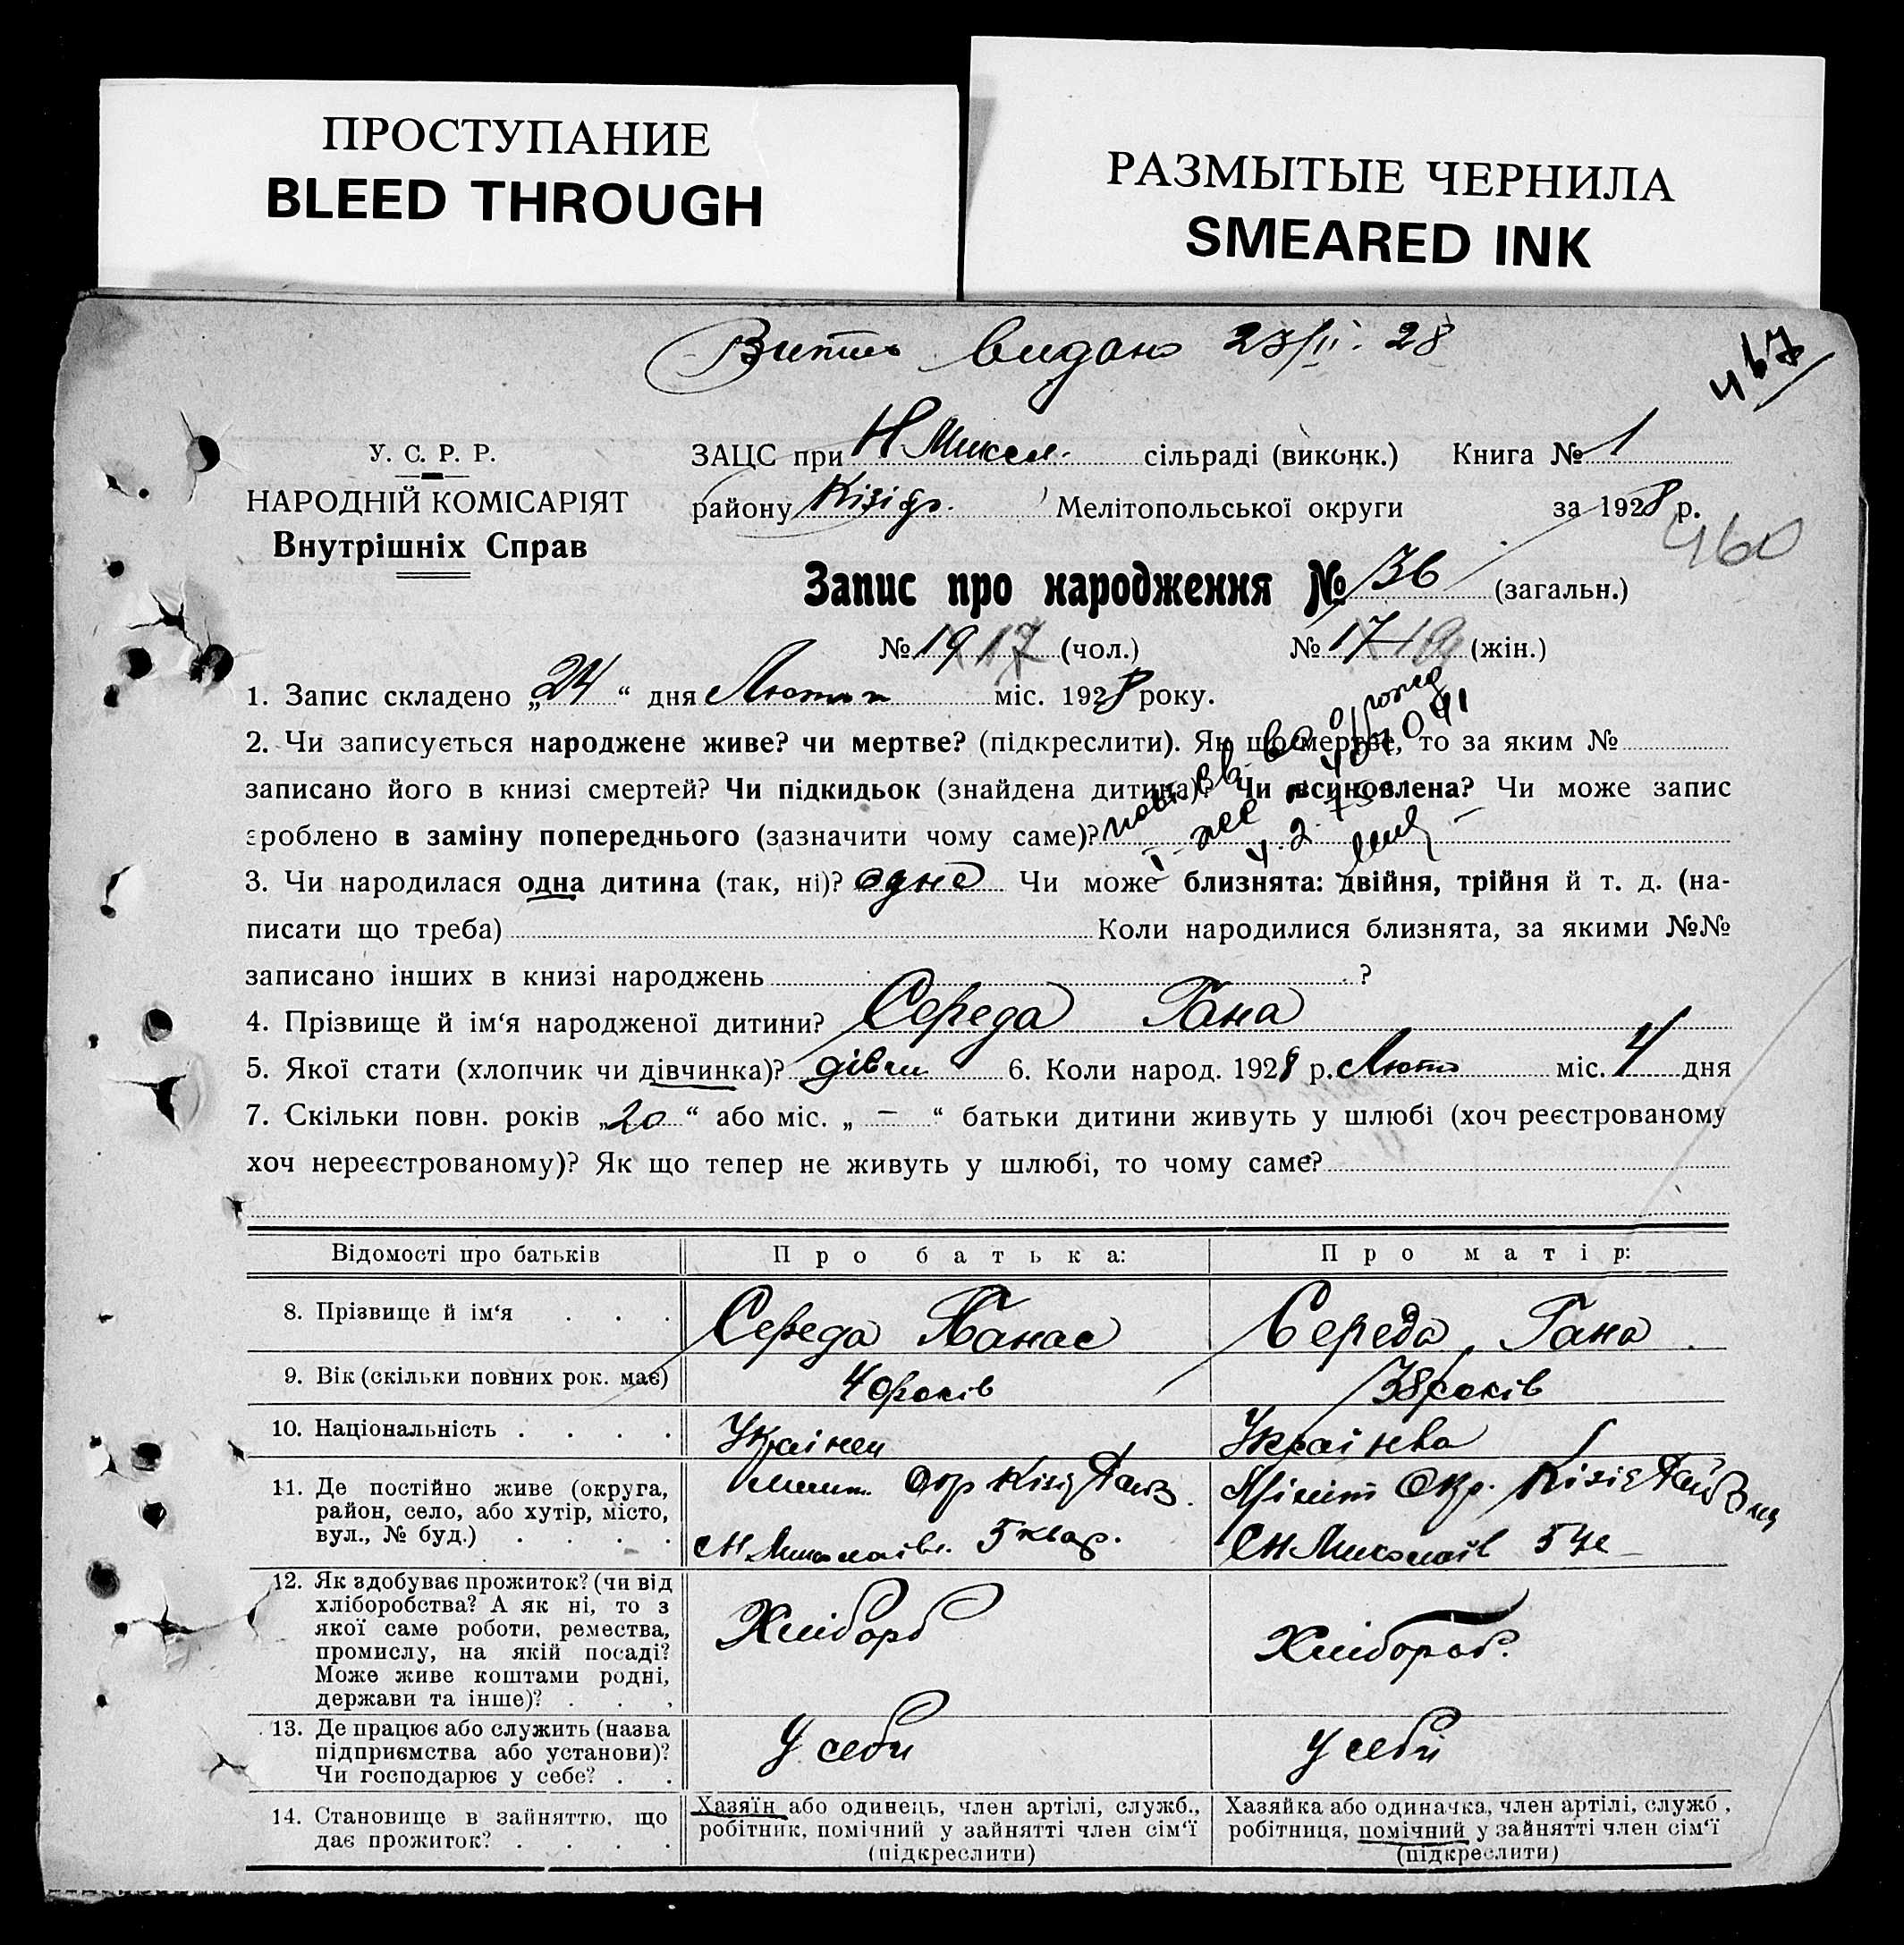 ПРОСТУПАНИЕ
BLEED THROUGH
РАЗМЫТЫЕ ЧЕРНИЛА
SMEARED INK
видано 27/II. 28
467
У. С. Р. Р.
НАРОДНІЙ КОМІСАРІЯТ
Внутрішніх Справ
ЗАЦС при Н Микол. сільраді (виконк.) Книга № 1
району Кізіяр. Мелітопольської округи за 1928 р.
460
Запис про народження № 36 (загальн.)
№ 19 17 (чол.) № 17 19 (жін.)
1. Запис складено „24“ дня Лютого міс. 1928 року.
2. Чи записується народжене живе? чи мертве? (підкреслити). Як що мертве, то за яким №
записано його в книзі смертей? Чи підкидьок (знайдена дитина)? Чи всиновлена? Чи може запис
зроблено в заміну попереднього (зазначити чому саме)?
3. Чи народилася одна дитина (так, ні)? одна Чи може близнята: двійня, трійня й т. д. (на-
писати що треба) Коли народилися близнята, за якими №№
записано інших в книзі народжень ?
4. Прізвище й ім‘я народженої дитини? Середа Гана
5. Якої стати (хлопчик чи дівчинка)? дівчи 6. Коли народ. 1928 р. Люто міс. 4 дня
7. Скільки повн. років „20“ або міс. „–“ батьки дитини живуть у шлюбі (хоч реєстрованому
хоч нереєстрованому)? Як що тепер не живуть у шлюбі, то чому саме?
Відомості про батьків Про батька: Про матір:
8. Прізвище й ім‘я . . . Середа Панас Середа Гана
9. Вік (скільки повних рок. має) 40 років 38 років
10. Національність . . . . Українец Українка
11. Де постійно живе (округа,
район, село, або хутір, місто,
вул., № буд.) . . . .
Мелит. Окр Кізія
СН Миколаївк. 5 квар.
Окр. Кізія
СН Миколаїв 5
12. Як здобуває прожиток? (чи від
хліборобства? А як ні, то з
якої саме роботи, ремества,
промислу, на якій посаді?
Може живе коштами родні,
держави та інше)? . . .
Хлібороб
Хлібороб.
13. Де працює або служить (назва
підприємства або установи)?
Чи господарює у себе? . .
У себи
У себи
14. Становище в зайняттю, що
дає прожиток? . . . .
Хазяїн або одинець, член артілі, служб.,
робітник, помічний у зайнятті член сім‘ї
(підкреслити)
Хазяйка або одиначка, член артілі, служб,
робітниця, помічний у зайнятті член сім‘ї
(підкреслити)